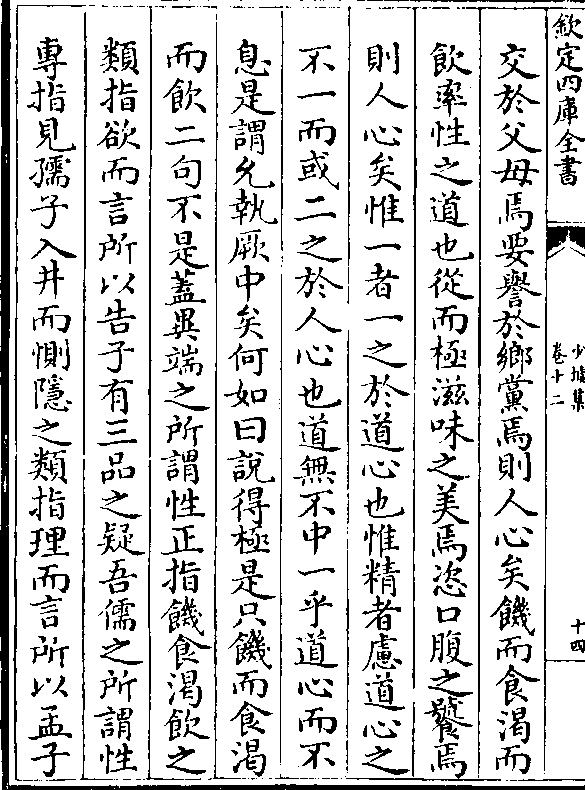 欽定四庫全書
少墟集
卷十二
十四
交於父母焉要譽於鄉黨焉則人心矣饑而食渴而
飲率性之道也從而極滋味之美焉恣口腹之饕焉
則人心矣惟一者一之於道心也惟精者慮道心之
不一而或二之於人心也道無不中一乎道心而不
息是謂允執厥中矣何如曰說得極是只饑而食渴
而飲二句不是蓋異端之所謂性正指饑食渴飲之
類指欲而言所以告子有三品之疑吾儒之所謂性
專指見孺子入井而惻隱之類指理而言所以孟子